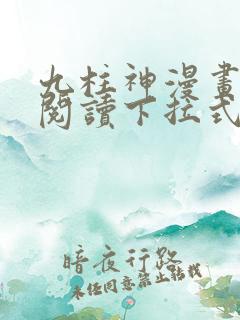 九柱神漫畫
閱讀下拉式
暗夜行路
未经同意禁止转载